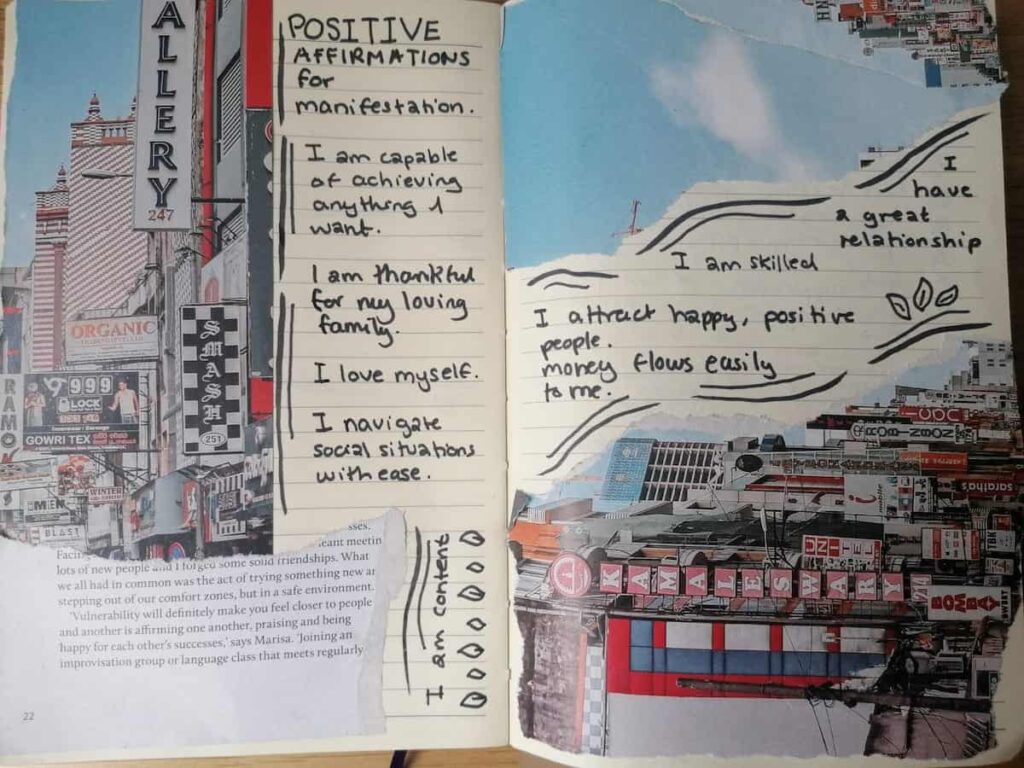 POSITIVE
AFFIRMATIONS
for
manifestation.
I am capable
of achieving
anything I
want.
I am thankful
for my loving
family.
I love myself.
I navigate
social situations
with ease.
I am content
ALLERY
247
ORGANIC
SMASH
251
999
LOCK
GOWRI TEX
RAMO
WINTER
MEN
BLAST
sses.
eant meetin
lots of new people and I forged some solid friendships. What
we all had in common was the act of trying something new an
stepping out of our comfort zones, but in a safe environment.
'Vulnerability will definitely make you feel closer to people
and another is affirming one another, praising and being
happy for each other's successes,' says Marisa. 'Joining an
improvisation group or language class that meets regularly
22
I
have
a great
relationship
I am skilled
I attract happy, positive
people.
money flows easily
to me.
UNITE
KAMALESWARY
BOMBAY
saralhas